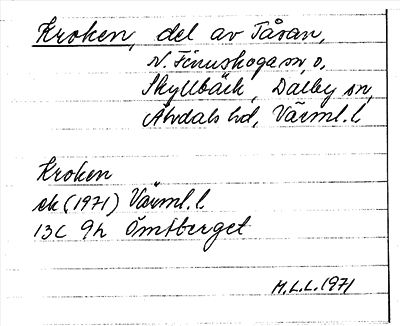 Kroken, del av Tåsan,
N. Finnskoga sn, o.
Skyllbäck, Dalby sn,
Älvdals hd, Värml. l
Kroken
ek (1971) Värml. l
13C 9h Ömtberget
M.L.L. 1971